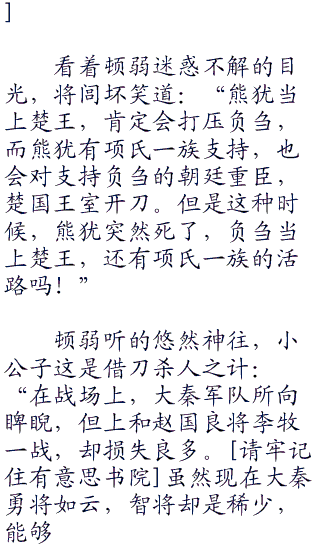 ]
看着顿弱迷惑不解的目
光，将闾坏笑道：“熊犹当
上楚王，肯定会打压负刍，
而熊犹有项氏一族支持，也
会对支持负刍的朝廷重臣，
楚国王室开刀。但是这种时
候，熊犹突然死了，负刍当
上楚王，还有项氏一族的活
路吗！”
顿弱听的悠然神往，小
公子这是借刀杀人之计：
“在战场上，大秦军队所向
睥睨，但上和赵国良将李牧
一战，却损失良多。[请牢记
住有意思书院]虽然现在大秦
勇将如云，智将却是稀少，
能够